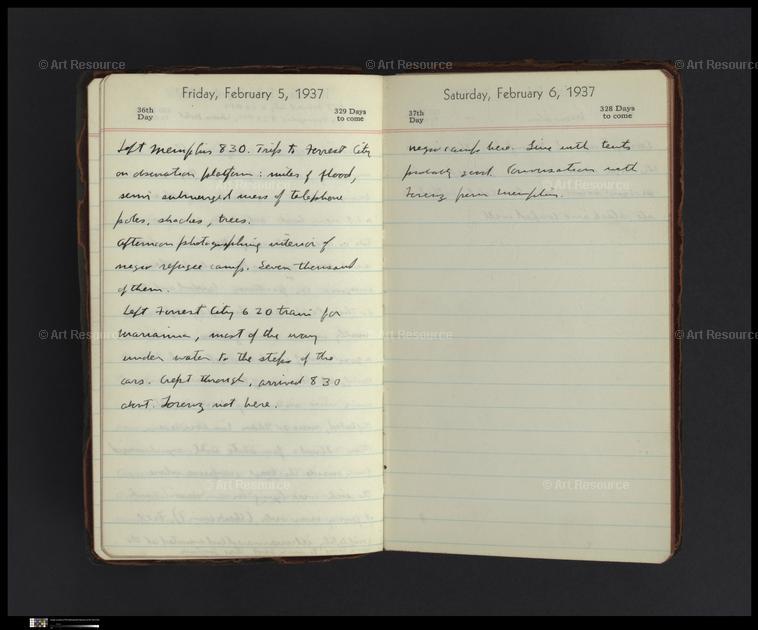 © Art Resource © Art Resource © Art Resource
Friday, February 5, 1937
36th
Day
329 Days
to come
Left Memphis 8 30. Trip to Forrest City
on observation platform: miles of flood,
semi submerged mess of telephone
poles, shacks, trees.
Afternoon photographing interior of
negro refugee camp. Seven thousand
of them.
Left Forrest City 6 20 train for
Marianna, most of the way
under water to the steps of the
cars. Crept through, arrived 8 30
abt. Lorenz not here.
Saturday, February 6, 1937
37th
Day
328 Days
to come
negro camp here. Line with tents
probably good. Conversation with
Lorenz from Memphis.
© Art Resource © Art Resource © Art Resource
© Art Resource © Art Resource © Art Resource